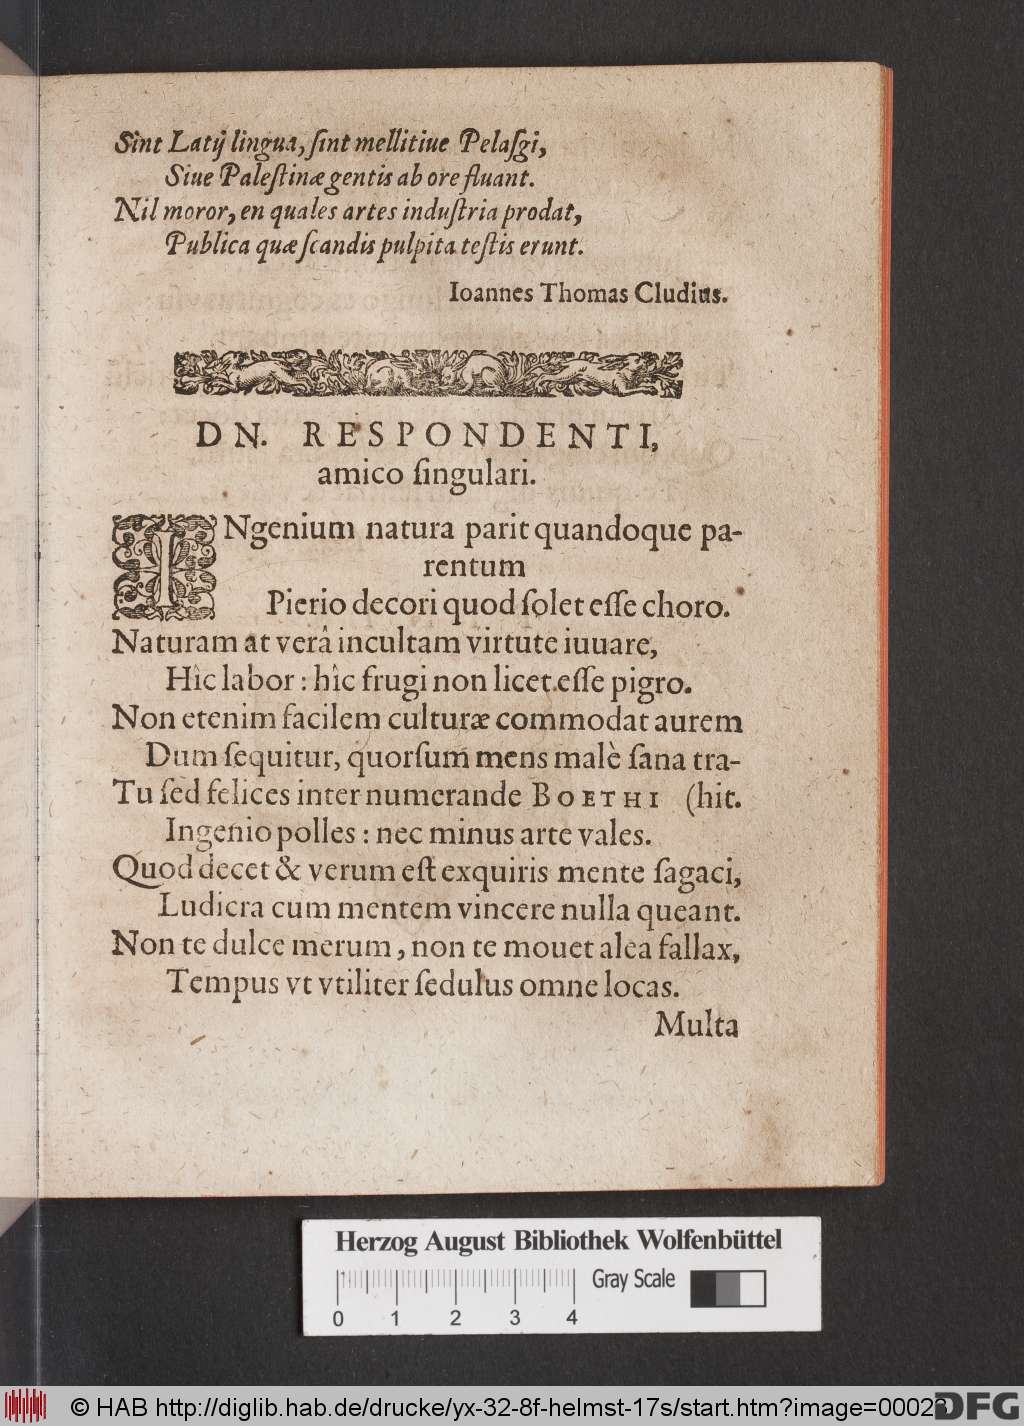 Sint Latij lingua, ſint mellitiue Pelaſgi,
Siue Paleſtinæ gentis ab ore fluant.
Nil moror, en quales artes induſtria prodat,
Publica quæ ſcandis pulpita teſtis erunt.
Ioannes Thomas Cludius.
DN. RESPONDENTI,
amico ſingulari.
INgenium natura parit quandoque pa-
rentum
Pierio decori quod ſolet eſſe choro.
Naturam at verâ incultam virtute iuuare,
Hîc labor: hîc frugi non licet eſſe pigro.
Non etenim facilem culturæ commodat aurem
Dum ſequitur, quorſum mens malè ſana tra-
Tu ſed felices inter numerande BOETHI (hit.
Ingenio polles: nec minus arte vales.
Quod decet & verum eſt exquiris mente ſagaci,
Ludicra cum mentem vincere nulla queant.
Non te dulce merum, non te mouet alea fallax,
Tempus vt vtiliter ſedulus omne locas.
Multa
Herzog August Bibliothek Wolfenbüttel
Gray Scale
0 1 2 3 4
© HAB http://diglib.hab.de/drucke/yx-32-8f-helmst-17s/start.htm?image=00023
DFG